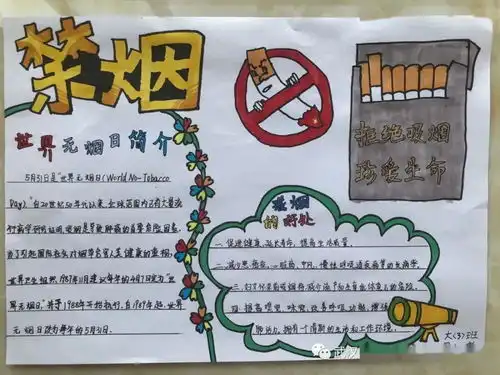 禁烟
世界无烟日简介
5月31日是“世界无烟日(World No-Tobacco
Day)。”自20世纪50年代以来,全球范围内已有大量流
行病学研究证明,吸烟是导致肺癌的首要危险因素。
为了引起国际社会对烟草危害人类健康的重视,
世界卫生组织1987年11月建议每年的4月7日定为“世
界无烟日”,并于1988年开始执行,自1989年起,世界
无烟日改为每年的5月31日。
拒绝吸烟
珍爱生命
戒烟
的好处
一、促进健康,延长寿命,提高生活质量。
二、减少患癌症、心脏病、中风、慢性呼吸道疾病等
四、提高嗅觉、味觉,改善呼吸功能,增强
肺活力,拥有个清新的生活和工作环境。
大(3)班